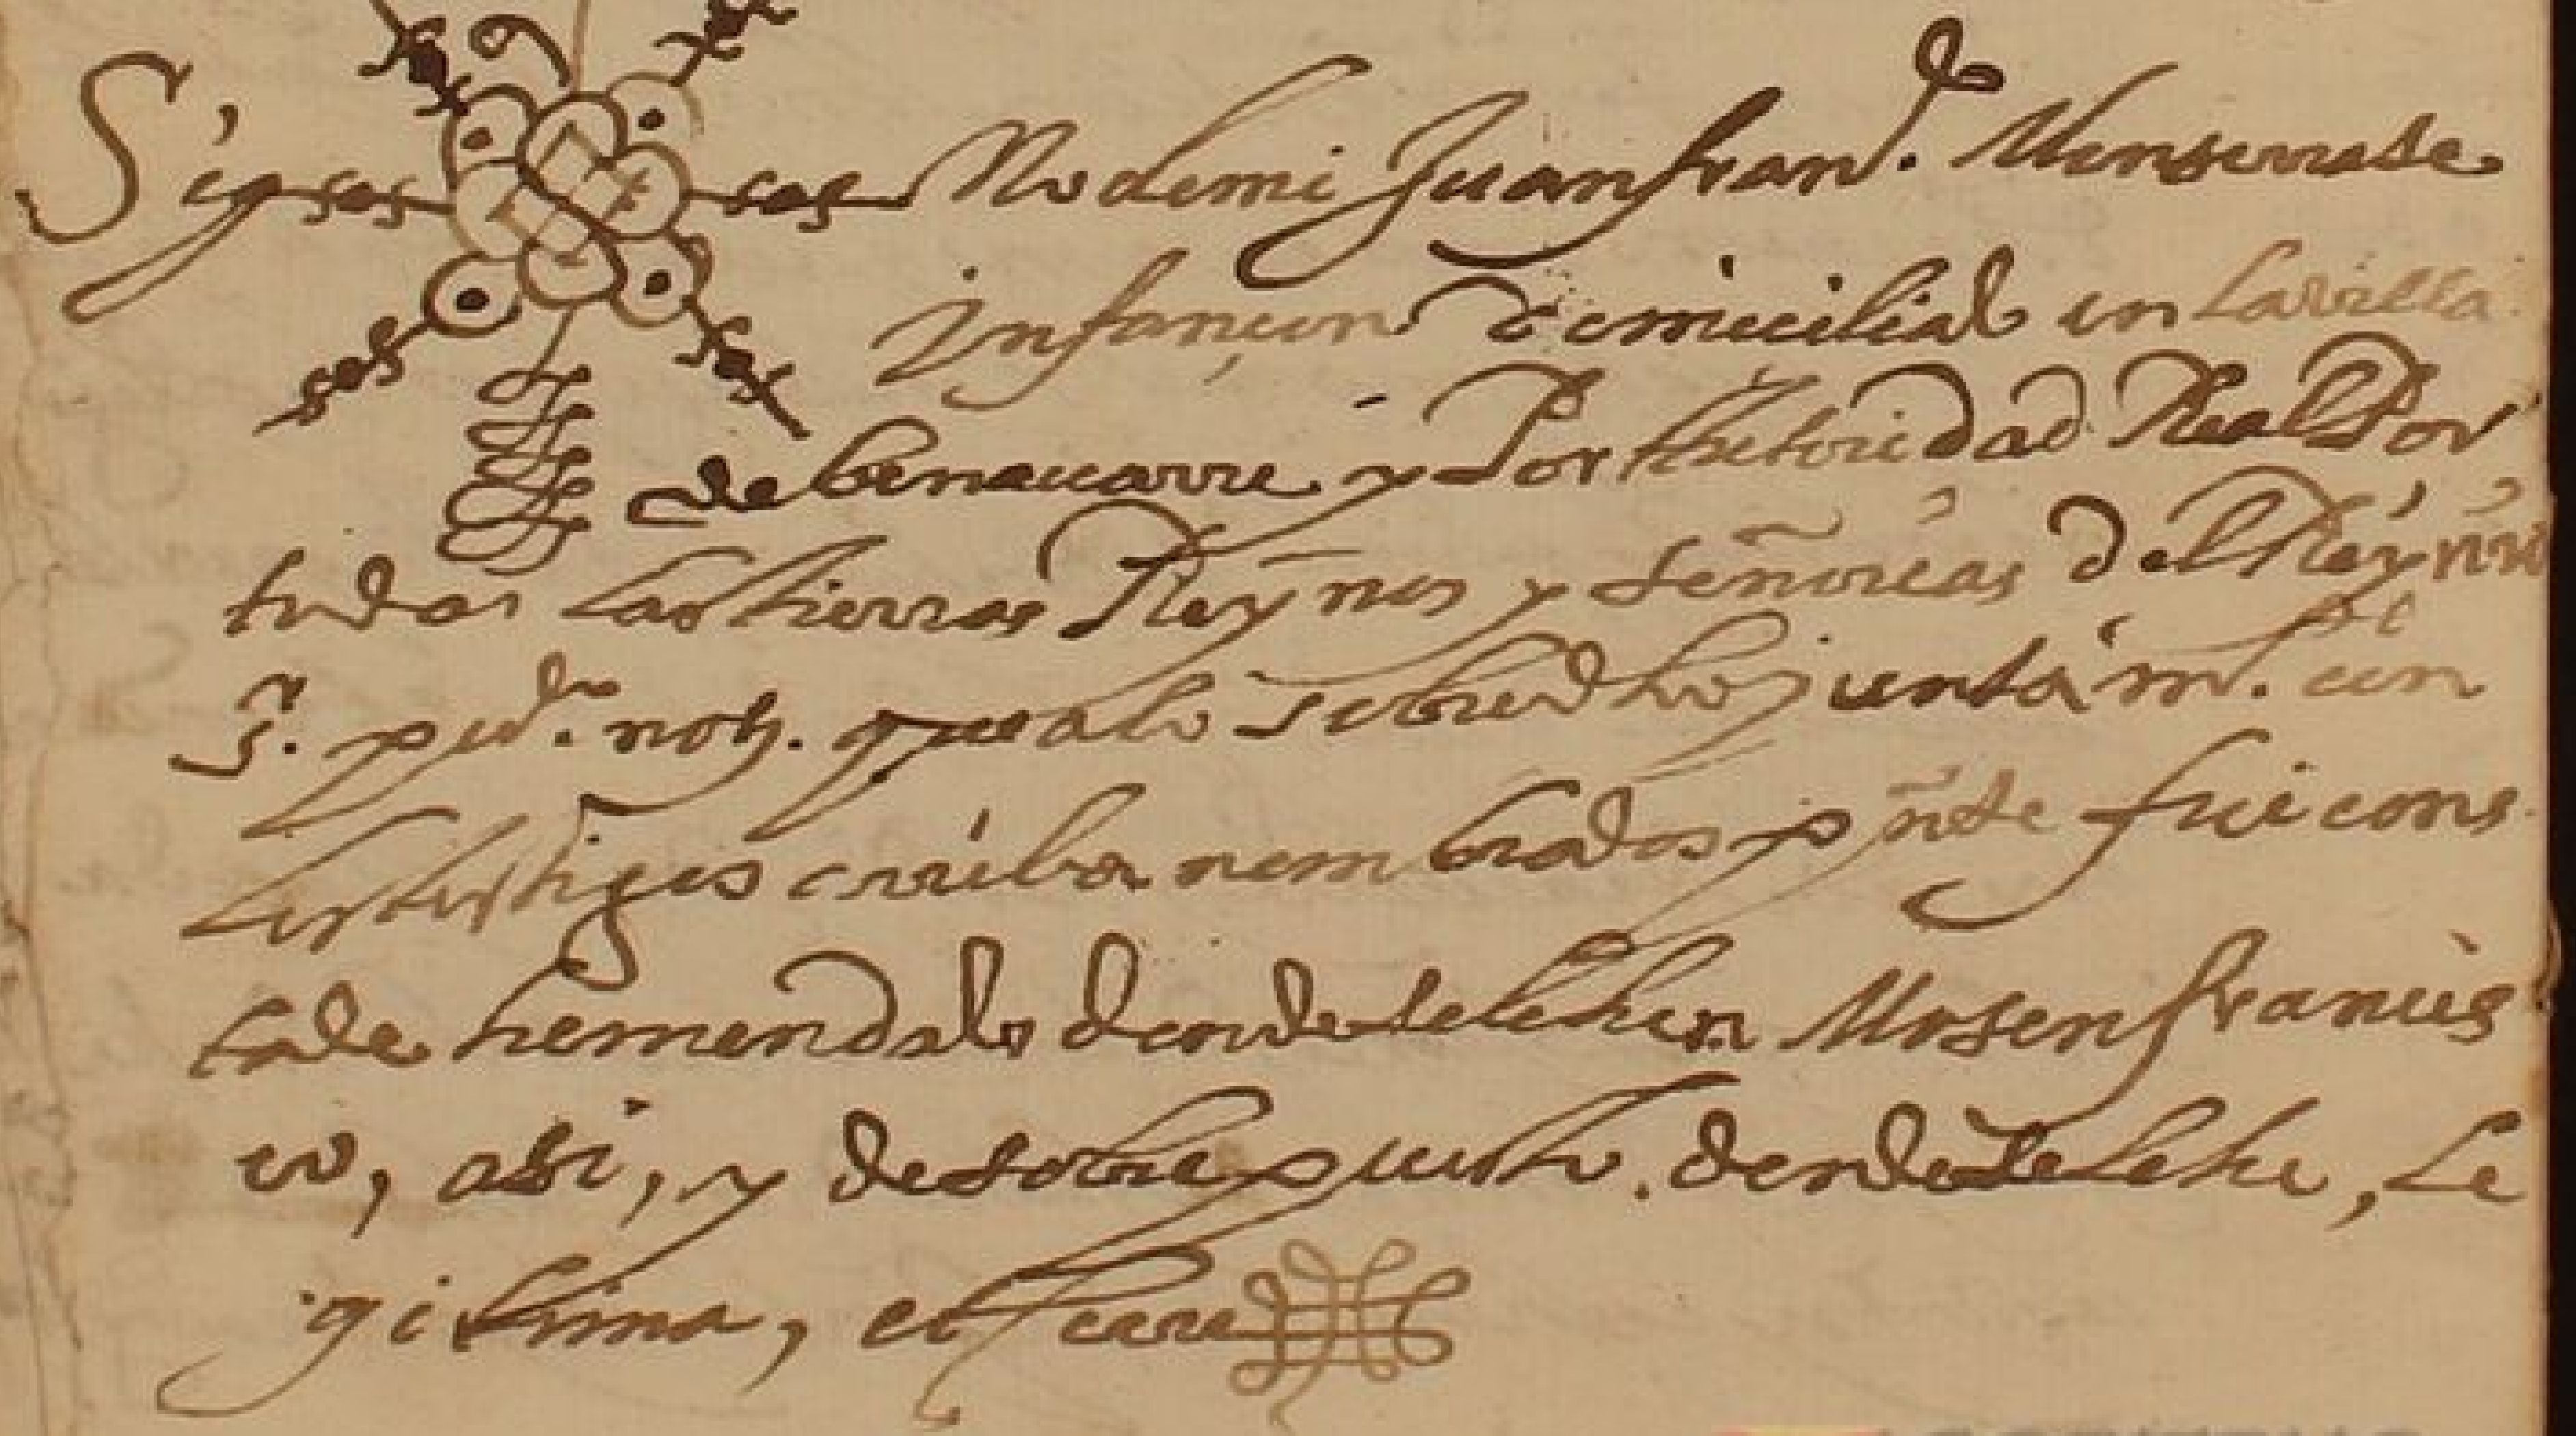 Sig no de mi Juan fran.do Monserrate
infançon domiciliado en la villa
de benauarre y Por Authoridad Real Por
todas las tierras Reynos y señorias del Rey nro
s.r pu.co not. que a lo sobredho juntam.te con
los testigos arriba nombrados pnte fui cons
ta de hemendado donde se lehe Mosen francis
co, asi, y de sobrepuesto. donde se lehe, le
gitima, et cerre